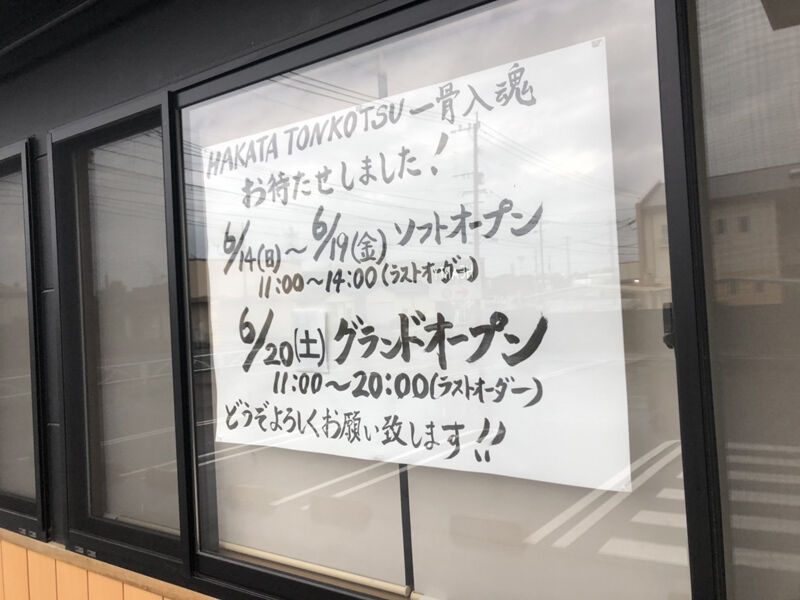 HAKATA TONKOTSU 一骨入魂
お待たせしました!
6/14(日)～6/19(金)ソフトオープン
11:00～14:00(ラストオーダー)
6/20(土)グランドオープン
11:00～20:00(ラストオーダー)
どうぞよろしくお願い致します!!